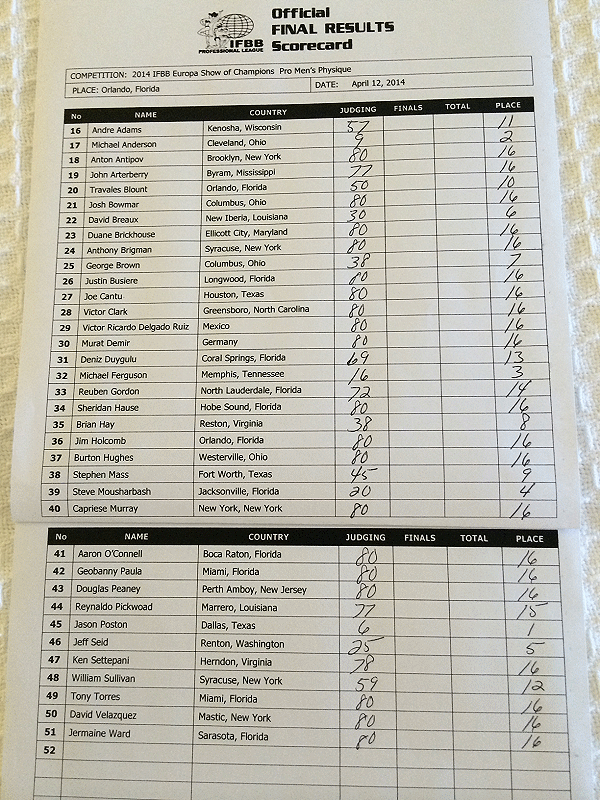 IFBB
PROFESSIONAL LEAGUE
Official
FINAL RESULTS
Scorecard
COMPETITION: 2014 IFBB Europa Show of Champions Pro Men's Physique
PLACE: Orlando, Florida DATE: April 12, 2014
No NAME COUNTRY JUDGING FINALS TOTAL PLACE
16 Andre Adams Kenosha, Wisconsin 57 11
17 Michael Anderson Cleveland, Ohio 9 2
18 Anton Antipov Brooklyn, New York 80 16
19 John Arterberry Byram, Mississippi 77 16
20 Travales Blount Orlando, Florida 50 10
21 Josh Bowmar Columbus, Ohio 80 16
22 David Breaux New Iberia, Louisiana 30 6
23 Duane Brickhouse Ellicott City, Maryland 80 16
24 Anthony Brigman Syracuse, New York 80 16
25 George Brown Columbus, Ohio 38 7
26 Justin Busiere Longwood, Florida 80 16
27 Joe Cantu Houston, Texas 80 16
28 Victor Clark Greensboro, North Carolina 80 16
29 Victor Ricardo Delgado Ruiz Mexico 80 16
30 Murat Demir Germany 80 16
31 Deniz Duygulu Coral Springs, Florida 69 13
32 Michael Ferguson Memphis, Tennessee 16 3
33 Reuben Gordon North Lauderdale, Florida 72 14
34 Sheridan Hause Hobe Sound, Florida 80 16
35 Brian Hay Reston, Virginia 38 8
36 Jim Holcomb Orlando, Florida 80 16
37 Burton Hughes Westerville, Ohio 80 16
38 Stephen Mass Fort Worth, Texas 45 9
39 Steve Mousharbash Jacksonville, Florida 20 4
40 Capriese Murray New York, New York 80 16
No NAME COUNTRY JUDGING FINALS TOTAL PLACE
41 Aaron O'Connell Boca Raton, Florida 80 16
42 Geobanny Paula Miami, Florida 80 16
43 Douglas Peaney Perth Amboy, New Jersey 80 16
44 Reynaldo Pickwoad Marrero, Louisiana 77 15
45 Jason Poston Dallas, Texas 6 1
46 Jeff Seid Renton, Washington 25 5
47 Ken Settepani Herndon, Virginia 78 16
48 William Sullivan Syracuse, New York 59 12
49 Tony Torres Miami, Florida 80 16
50 David Velazquez Mastic, New York 80 16
51 Jermaine Ward Sarasota, Florida 80 16
52